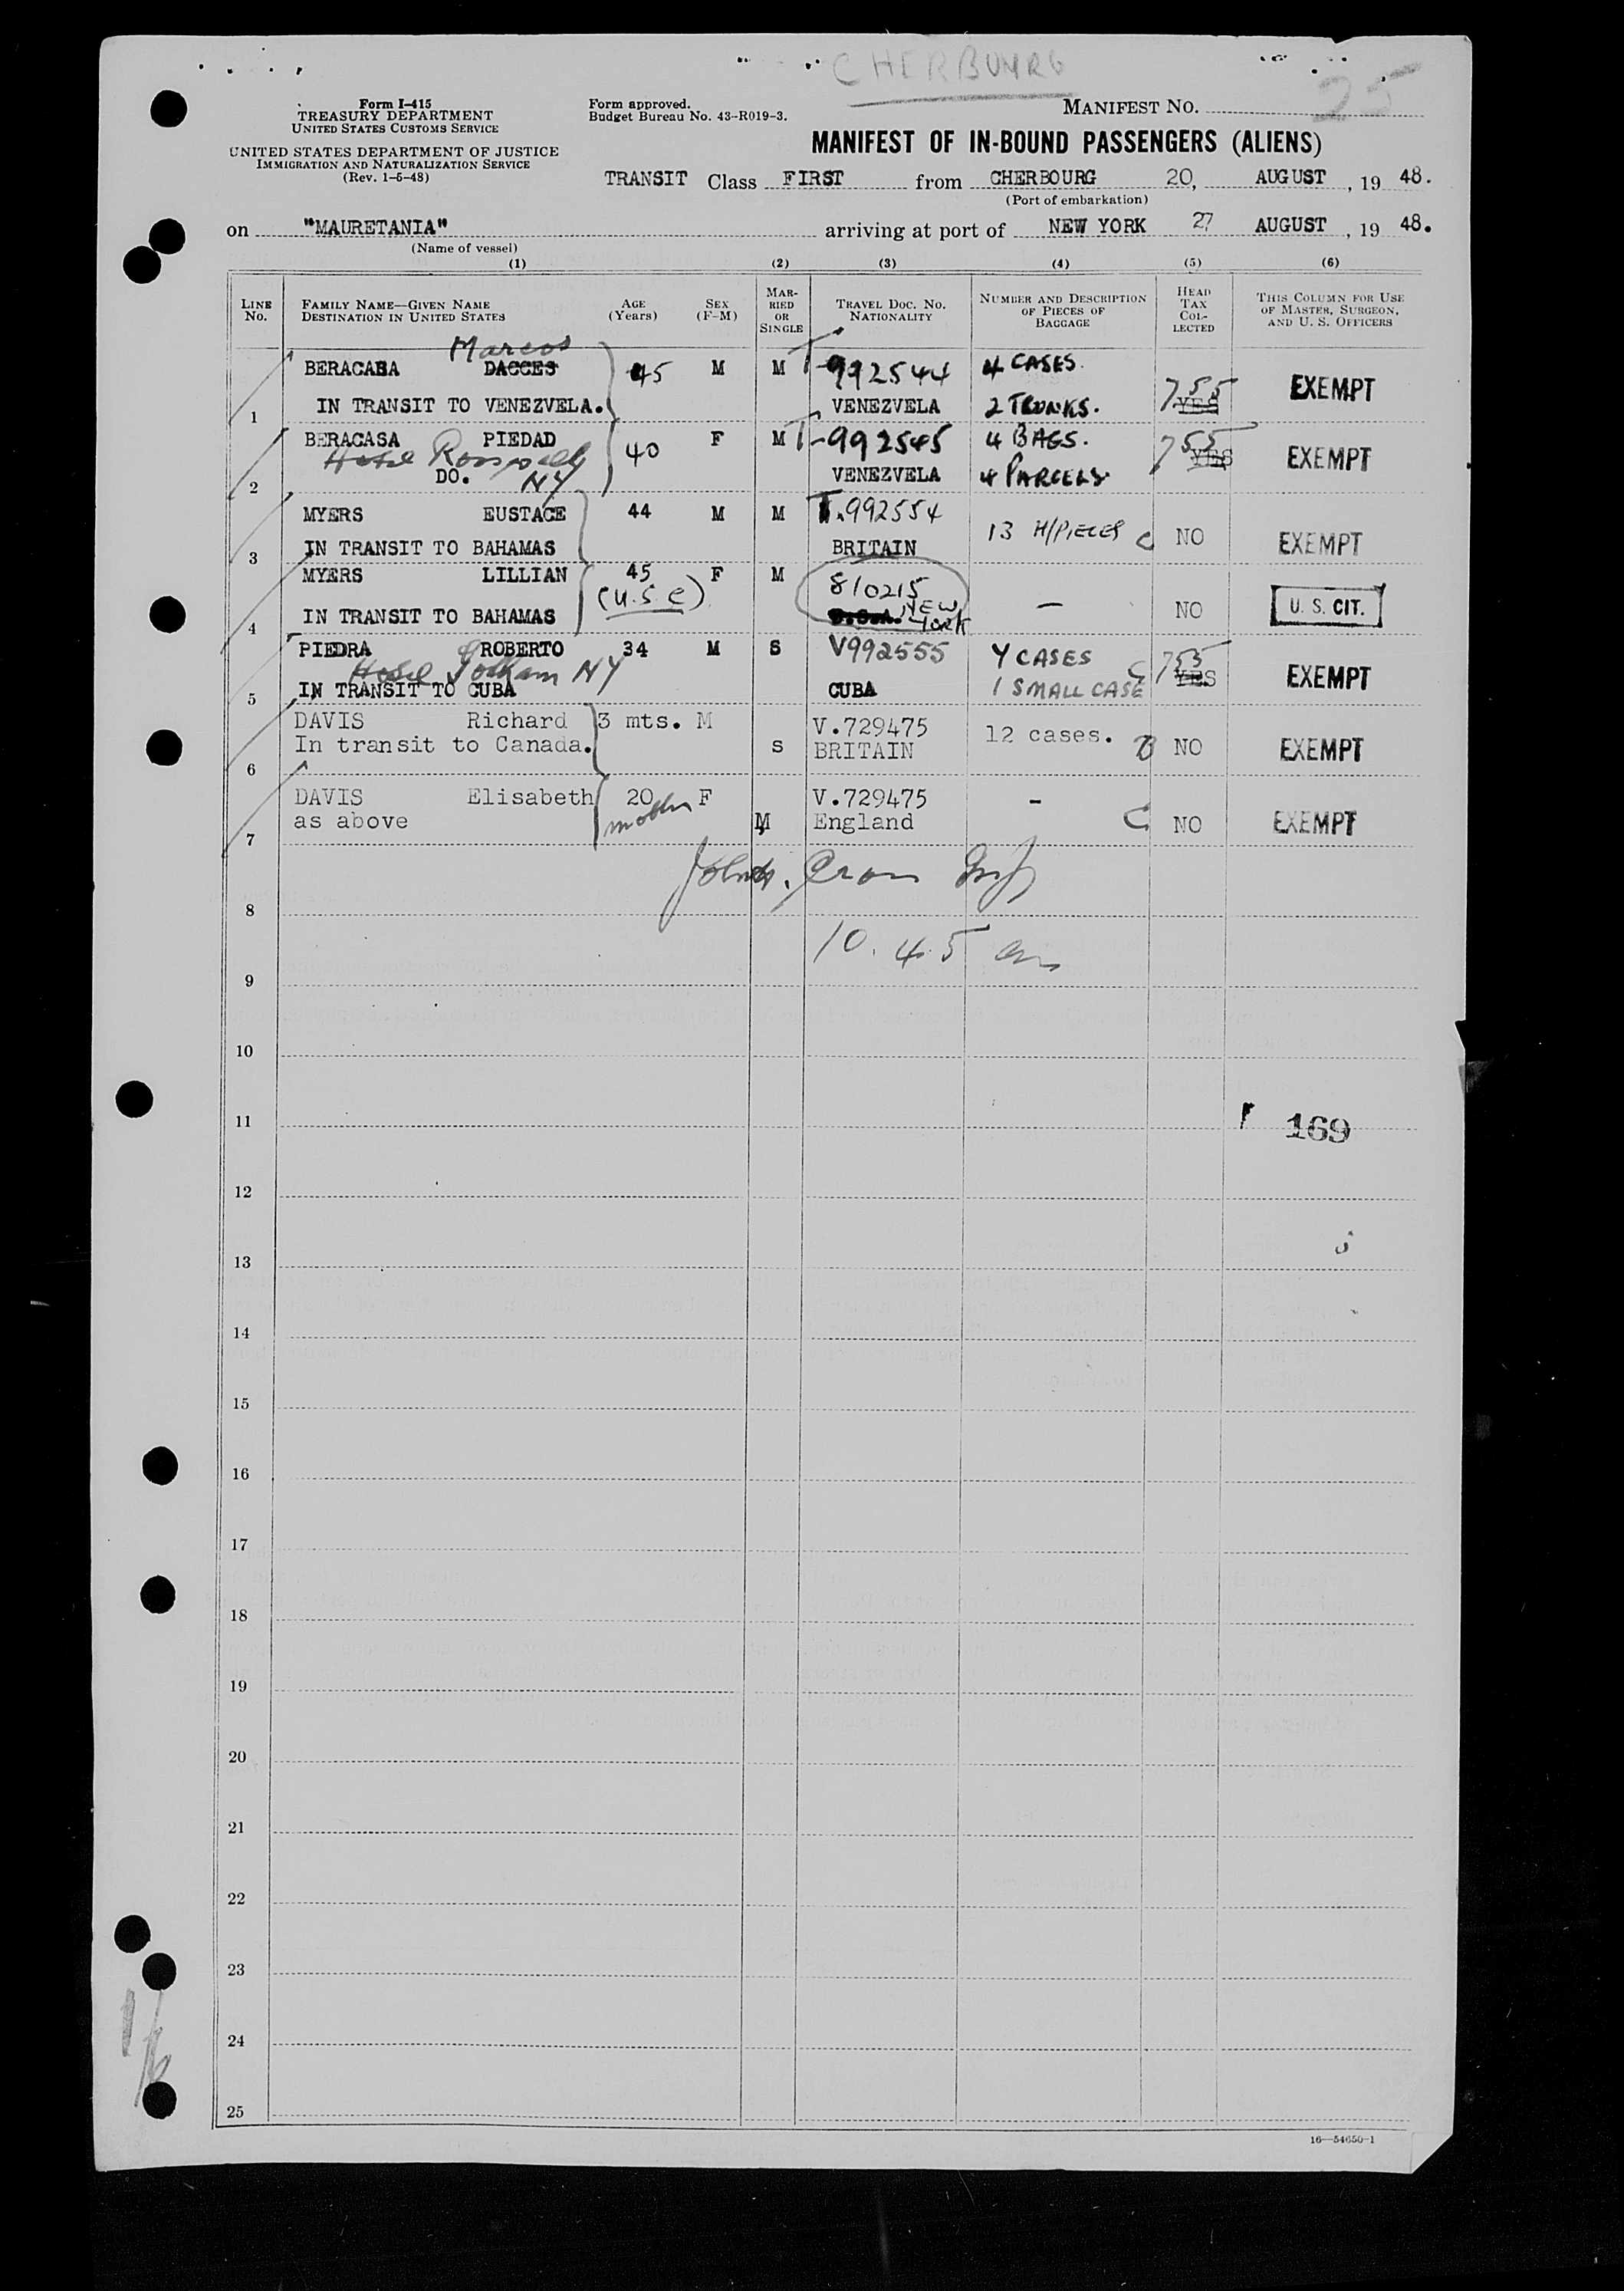 CHERBOURG
Form I-415
TREASURY DEPARTMENT
UNITED STATES CUSTOMS SERVICE
UNITED STATES DEPARTMENT OF JUSTICE
IMMIGRATION AND NATURALIZATION SERVICE
(Rev. 1-6-48)
Form approved.
Budget Bureau No. 43-R019-3.
MANIFEST NO. 25
MANIFEST OF IN-BOUND PASSENGERS (ALIENS)
TRANSIT Class FIRST from CHERBOURG 20, AUGUST, 19 48.
(Port of embarkation)
on "MAURETANIA" arriving at port of NEW YORK 27 AUGUST, 19 48.
(Name of vessel)
(1) (2) (3) (4) (5) (6)
LINE No. FAMILY NAME—GIVEN NAME DESTINATION IN UNITED STATES AGE (Years) SEX (F-M) MARRIED OR SINGLE TRAVEL DOC. NO. NATIONALITY NUMBER AND DESCRIPTION OF PIECES OF BAGGAGE HEAD TAX COLLECTED THIS COLUMN FOR USE OF MASTER, SURGEON, AND U. S. OFFICERS
Marcos
BERACASA DACCES 45 M M T-992544 4 CASES.
1 IN TRANSIT TO VENEZVELA. VENEZVELA 2 TRUNKS. 755 YES EXEMPT
BERACASA PIEDAD 40 F M T-992545 4 BAGS. 755
Hotel
2 DO. NY VENEZVELA 4 PARCELS YES EXEMPT
MYERS EUSTACE 44 M M T.992554 13 H/PIECES C NO EXEMPT
3 IN TRANSIT TO BAHAMAS BRITAIN
MYERS LILLIAN 45 F M 810215
(U.S.C)
4 IN TRANSIT TO BAHAMAS U.S.A. NEW YORK — NO U. S. CIT.
PIEDRA ROBERTO 34 M S V992555 4 CASES C 755
Hotel Gotham NY
5 IN TRANSIT TO CUBA CUBA 1 SMALL CASE YES EXEMPT
DAVIS Richard 3 mts. M V.729475 12 cases.
6 In transit to Canada. S BRITAIN NO EXEMPT
DAVIS Elisabeth 20 F V.729475 -
mother
7 as above M England C NO EXEMPT
8
10.45 am
9
10
11 169
12
13
14
15
16
17
18
19
20
21
22
23
24
25
16—54650-1